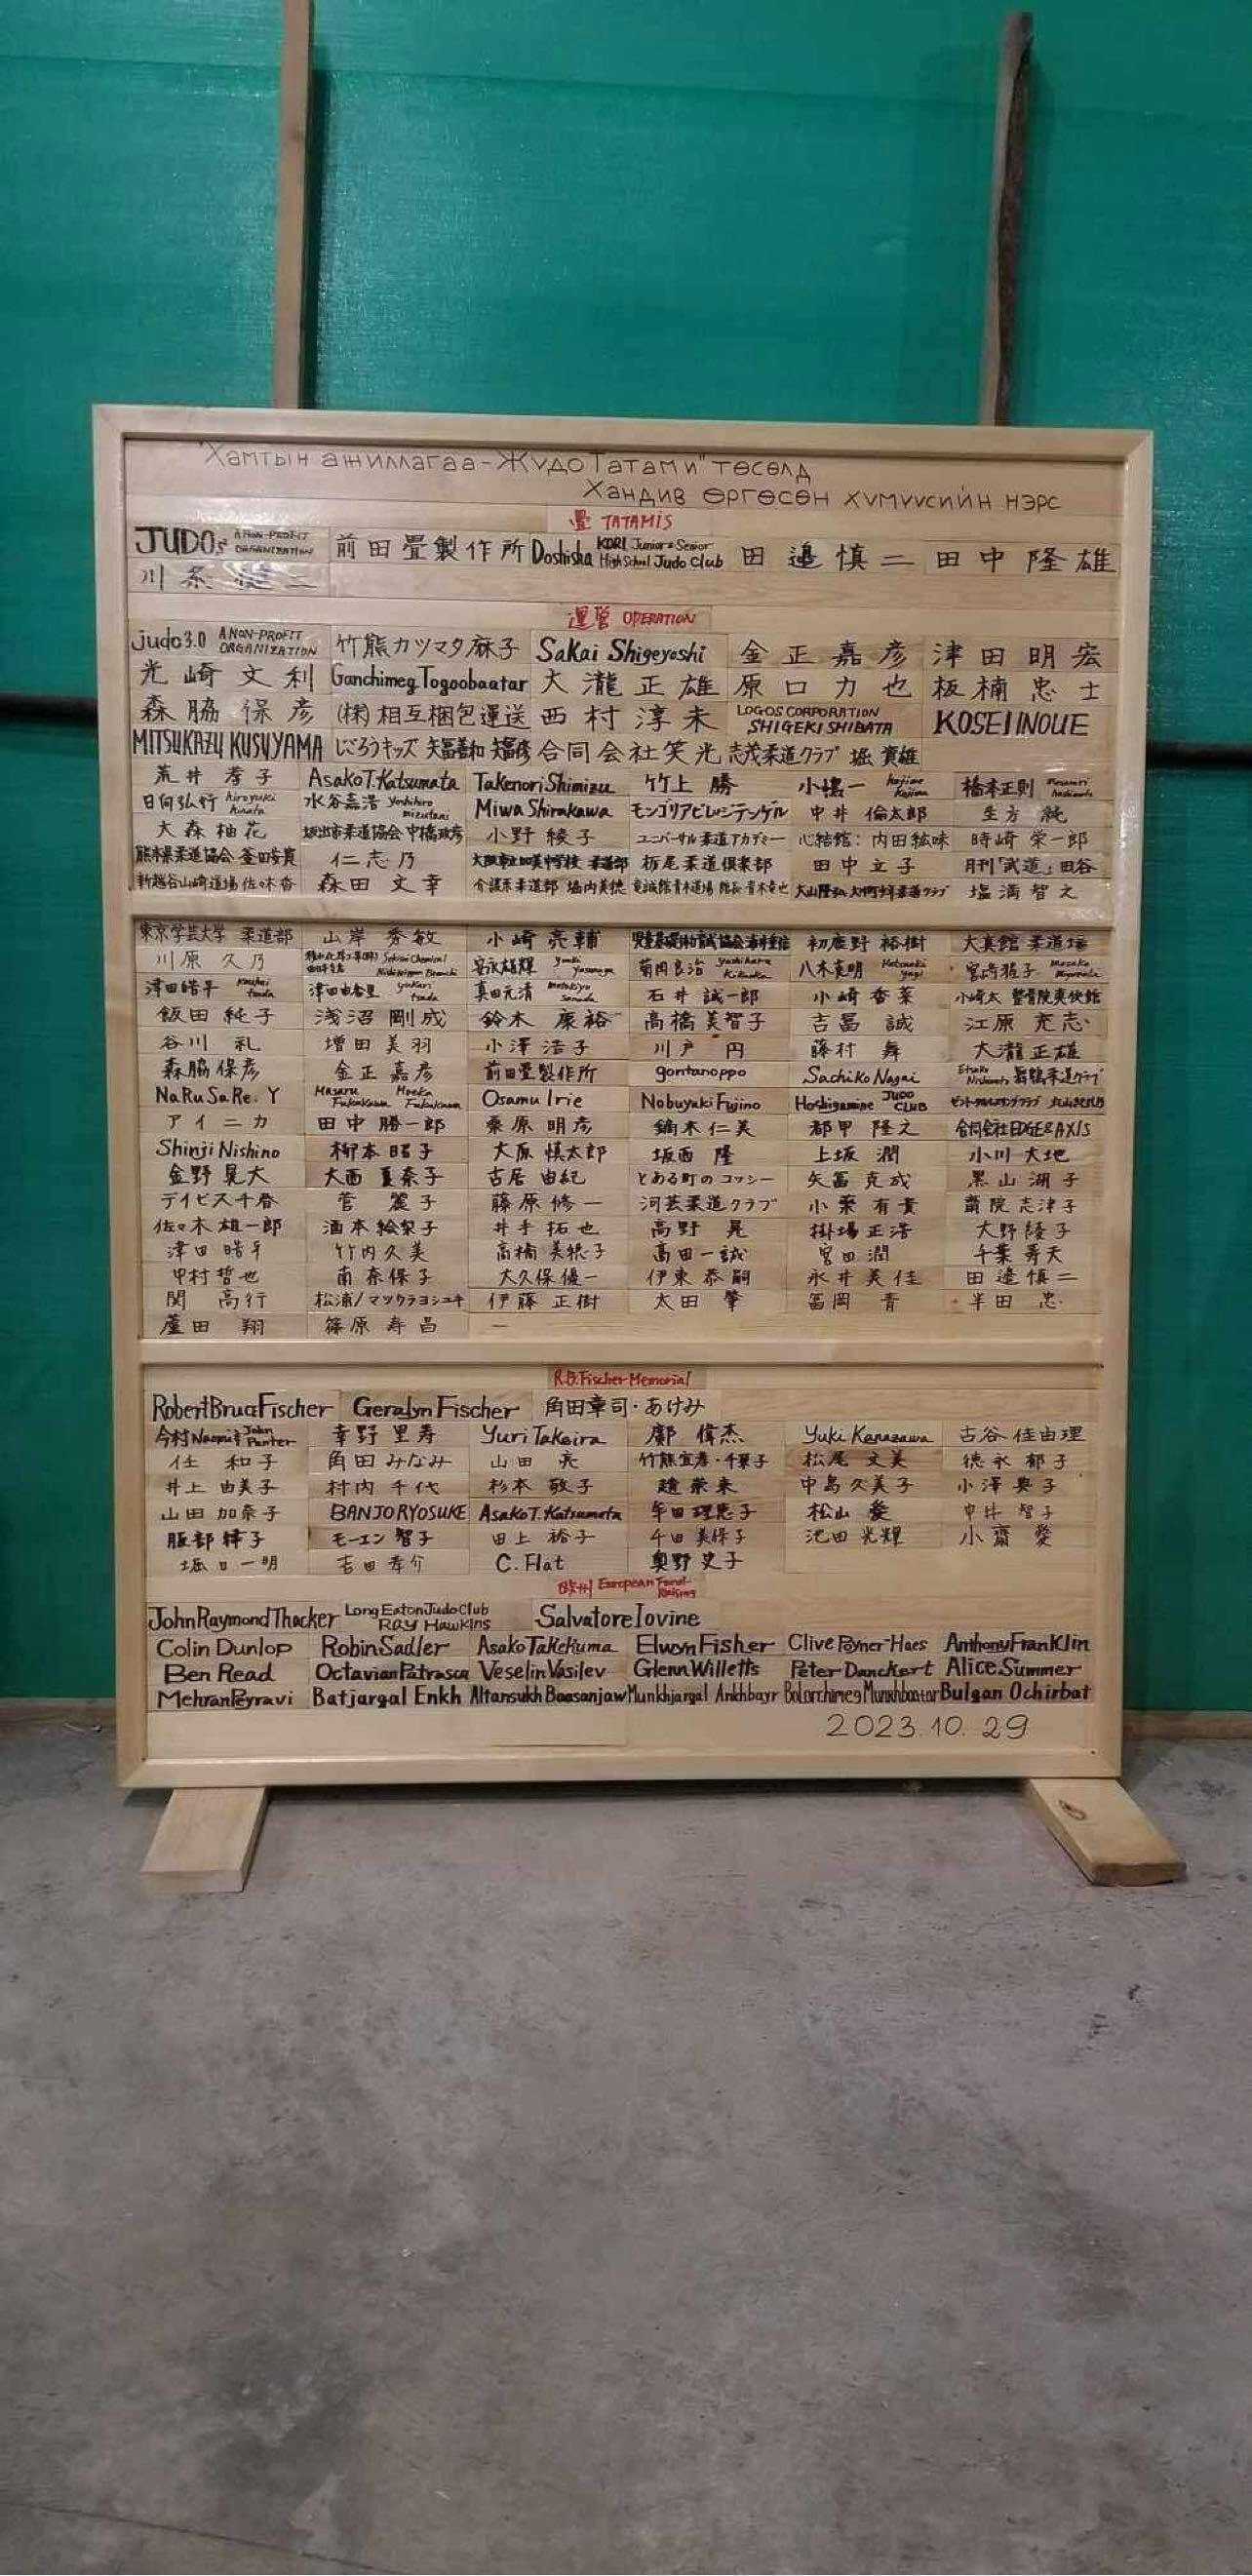 "Хамтын ажиллагаа-Жудо Татами" төсөлд
Хандив өргөсөн хүмүүсийн нэрс
畳 TATAMIS
JUDOs A NON-PROFIT ORGANIZATION 前田畳製作所 Doshisha KORI Junior & Senior High School Judo Club 田邉慎二 田中隆雄
運営 OPERATION
judo3.0 A NON-PROFIT ORGANIZATION 竹熊カツマタ麻子 Sakai Shigeyoshi 金正嘉彦 津田明宏
光崎文利 Ganchimeg Togoobaatar 大瀧正雄 原口力也 板楠忠士
森脇保彦 (株)相互梱包運送 西村淳未 LOGOS CORPORATION SHIGEKI SHIBATA KOSEI INOUE
MITSUKAZU KUSUYAMA じごろうキッズ 合同会社笑光 志茂柔道クラブ 堀資雄
荒井孝子 Asako T. Katsumata Takenori Shimizu 竹上勝 小嶋一 hajime kojima 橋本正則
日向弘行 hiroyuki hinata 水谷嘉浩 yoshihiro mizutani Miwa Shirakawa モンゴリアビレッジテンゲル 中井倫太郎 生方純
大森柚花 坂出市柔道協会 小野綾子 ユニバーサル柔道アカデミー 心結館:内田絃味 時崎栄一郎
熊本県柔道協会 仁志乃 栃尾柔道倶楽部 田中立子 月刊「武道」田谷
新越谷山崎道場 佐々木香 森田文幸 介護系柔道部 堀内美徳 塩満智之
東京学芸大学 柔道部 山岸秀敏 小崎亮輔 初鹿野裕樹 大真館柔道場
川原久乃 安永雄輝 yuuki yasunaga 菊岡良治 yoshiharu Kikuoka 八木克明 yagi 宮崎雅子
津田皓平 kouhei tsuda 津田由香里 yukari tsuda 真田元清 motokiyo sanada 石井誠一郎 小崎香菜 小崎太 整骨院爽快館
飯田純子 浅沼剛成 鈴木康裕 高橋美智子 吉冨誠 江原充志
谷川礼 増田美羽 小澤浩子 川戸円 藤村舞 大瀧正雄
森脇保彦 金正嘉彦 前田畳製作所 gontanoppo Sachiko Nagai Etsuko Nishimoto 舞鶴柔道クラブ
NaRuSaRe. Y Masaru Fukukawa Moeka Fukukawa Osamu Irie Nobuyuki Fujino Hoshigamine JUDO CLUB
アイニカ 田中勝一郎 桑原明彦 鏑木仁美 都甲隆之 合同会社EDGE&AXIS
Shinji Nishino 柳本昭子 大原慎太郎 坂西隆 上坂潤 小川大地
金野晃大 大西夏奈子 古居由紀 とある町のコッシー 矢冨克成 黒山湖子
デイビス千春 菅麗子 藤原修一 河芸柔道クラブ 小栗有貴 薗院志津子
佐々木雄一郎 酒本絵梨子 井手拓也 高野晃 掛場正浩 大野綾子
津田皓平 竹内久美 高橋美穂子 高田一誠 宮田潤 千葉寿夫
中村哲也 南奈保子 大久保優一 伊東恭嗣 永井美佳 田邉慎二
関高行 松浦/マツウラヨシユキ 伊藤正樹 太田肇 冨岡青 半田忠
蘆田翔 篠原寿昌
R.B. Fischer Memorial
Robert Bruce Fischer Geralyn Fischer 角田章司・あけみ
今村Naomi & John Panter 幸野里寿 Yuri Takeira 鄭偉杰 Yuki Kanazawa 古谷佳由理
任和子 角田みなみ 山田亮 竹熊宜孝・千葉子 松尾文美 徳永郁子
井上由美子 村内千代 杉本敬子 趙崇来 中島久美子 小澤典子
山田加奈子 BANJO RYOSUKE Asako T. Katsumata 牟田理恵子 松山愛 中井智子
服部緯子 モーエン智子 田上裕子 千田美保子 池田光輝 小齋愛
堀口一明 吉田孝介 C. Flat 奥野史子
欧州 European Fund-Raising
John Raymond Thacker Long Eaton Judo Club RAY HAWKINS Salvatore Iovine
Colin Dunlop Robin Sadler Asako Takekuma Elwyn Fisher Clive Poyner-Haes Anthony Franklin
Ben Read Octavian Patrasca Veselin Vasilev Glenn Willetts Peter Danckert Alice Summer
Mehran Peyravi Batjargal Enkh Altansukh Baasanjaw Munkhjargal Ankhbayr Bolorchimeg Munkhbaatar Bulgan Ochirbat
2023.10.29